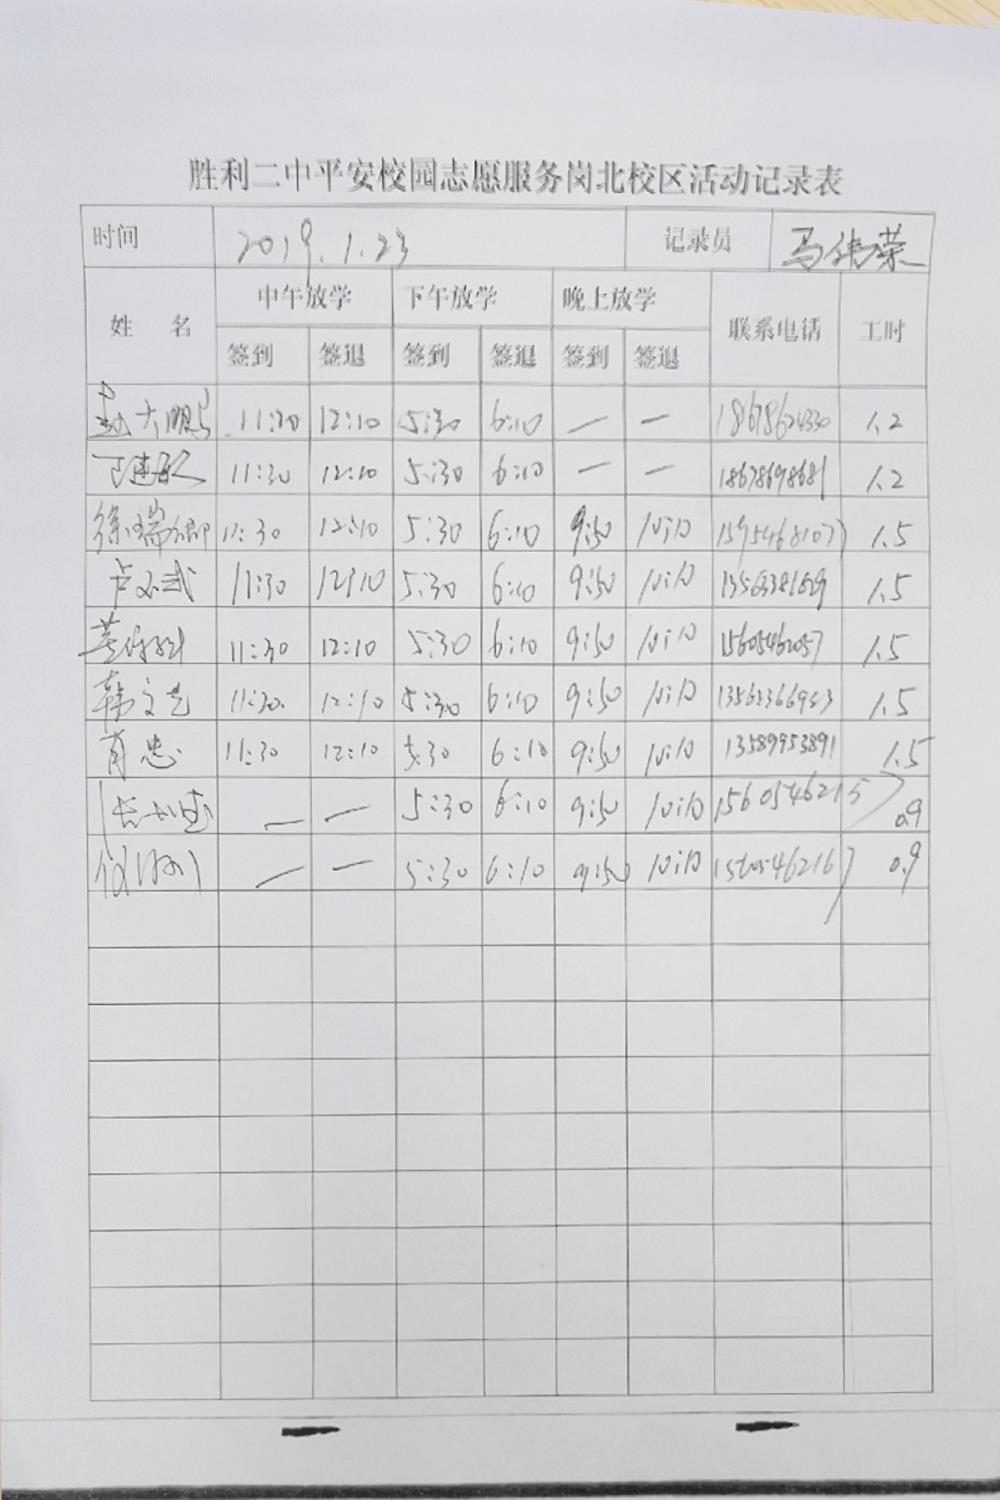 胜利二中平安校园志愿服务岗北校区活动记录表
时间 2019.1.23 记录员 马伟荣
姓名 中午放学 下午放学 晚上放学 联系电话 工时
签到 签退 签到 签退 签到 签退
赵大鹏 11:30 12:10 5:30 6:10 — — 18678624330 1.2
11:30 12:10 5:30 6:10 — — 18678698681 1.2
徐瑞卿 11:30 12:10 5:30 6:10 9:50 10:10 15954681077 1.5
11:30 12:10 5:30 6:10 9:50 10:10 1.5
11:30 12:10 5:30 6:10 9:50 10:10 15605462057 1.5
韩文艺 11:30 12:10 5:30 6:10 9:50 10:10 1.5
肖忠 11:30 12:10 5:30 6:10 9:50 10:10 13589953891 1.5
— — 5:30 6:10 9:50 10:10 15605462157 0.9
— — 5:30 6:10 9:50 10:10 15605462167 0.9